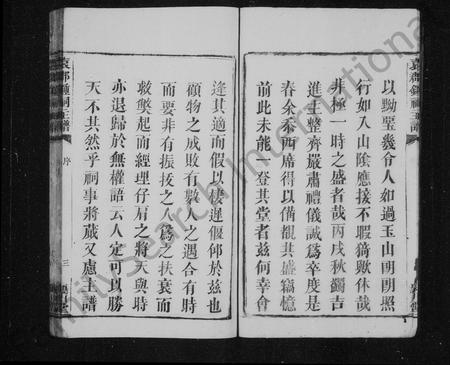 以黝堊幾令人如過玉山朗朗照
行如入山陰應接不暇猗歟休哉
非極一時之盛者哉丙戌秋蠲吉
進主整齊嚴肅禮儀誠為卒度是
春余忝西席得以備覩其盛竊憶
前此未能一登其堂者茲何幸會
逢其適而假以棲遲偃仰於茲也
顧物之成敗有數人之遇合有時
而要非有振拔之人為之扶衰而
救獘起而經理仔肩之將天與時
亦退歸於無權語云人定可以勝
天不其然乎祠事將蕆又慮主譜
袁郡鍾祠主譜
序
三